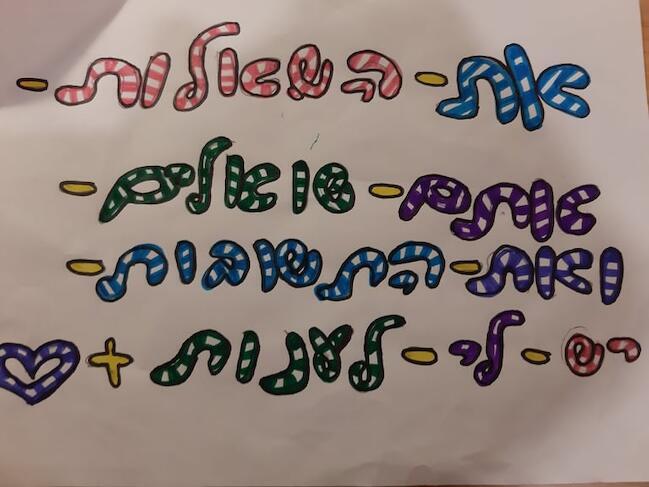 את-השאלות-
אתם-שואלים-
ואת-התשובות-
יש-לי-לענות+♡